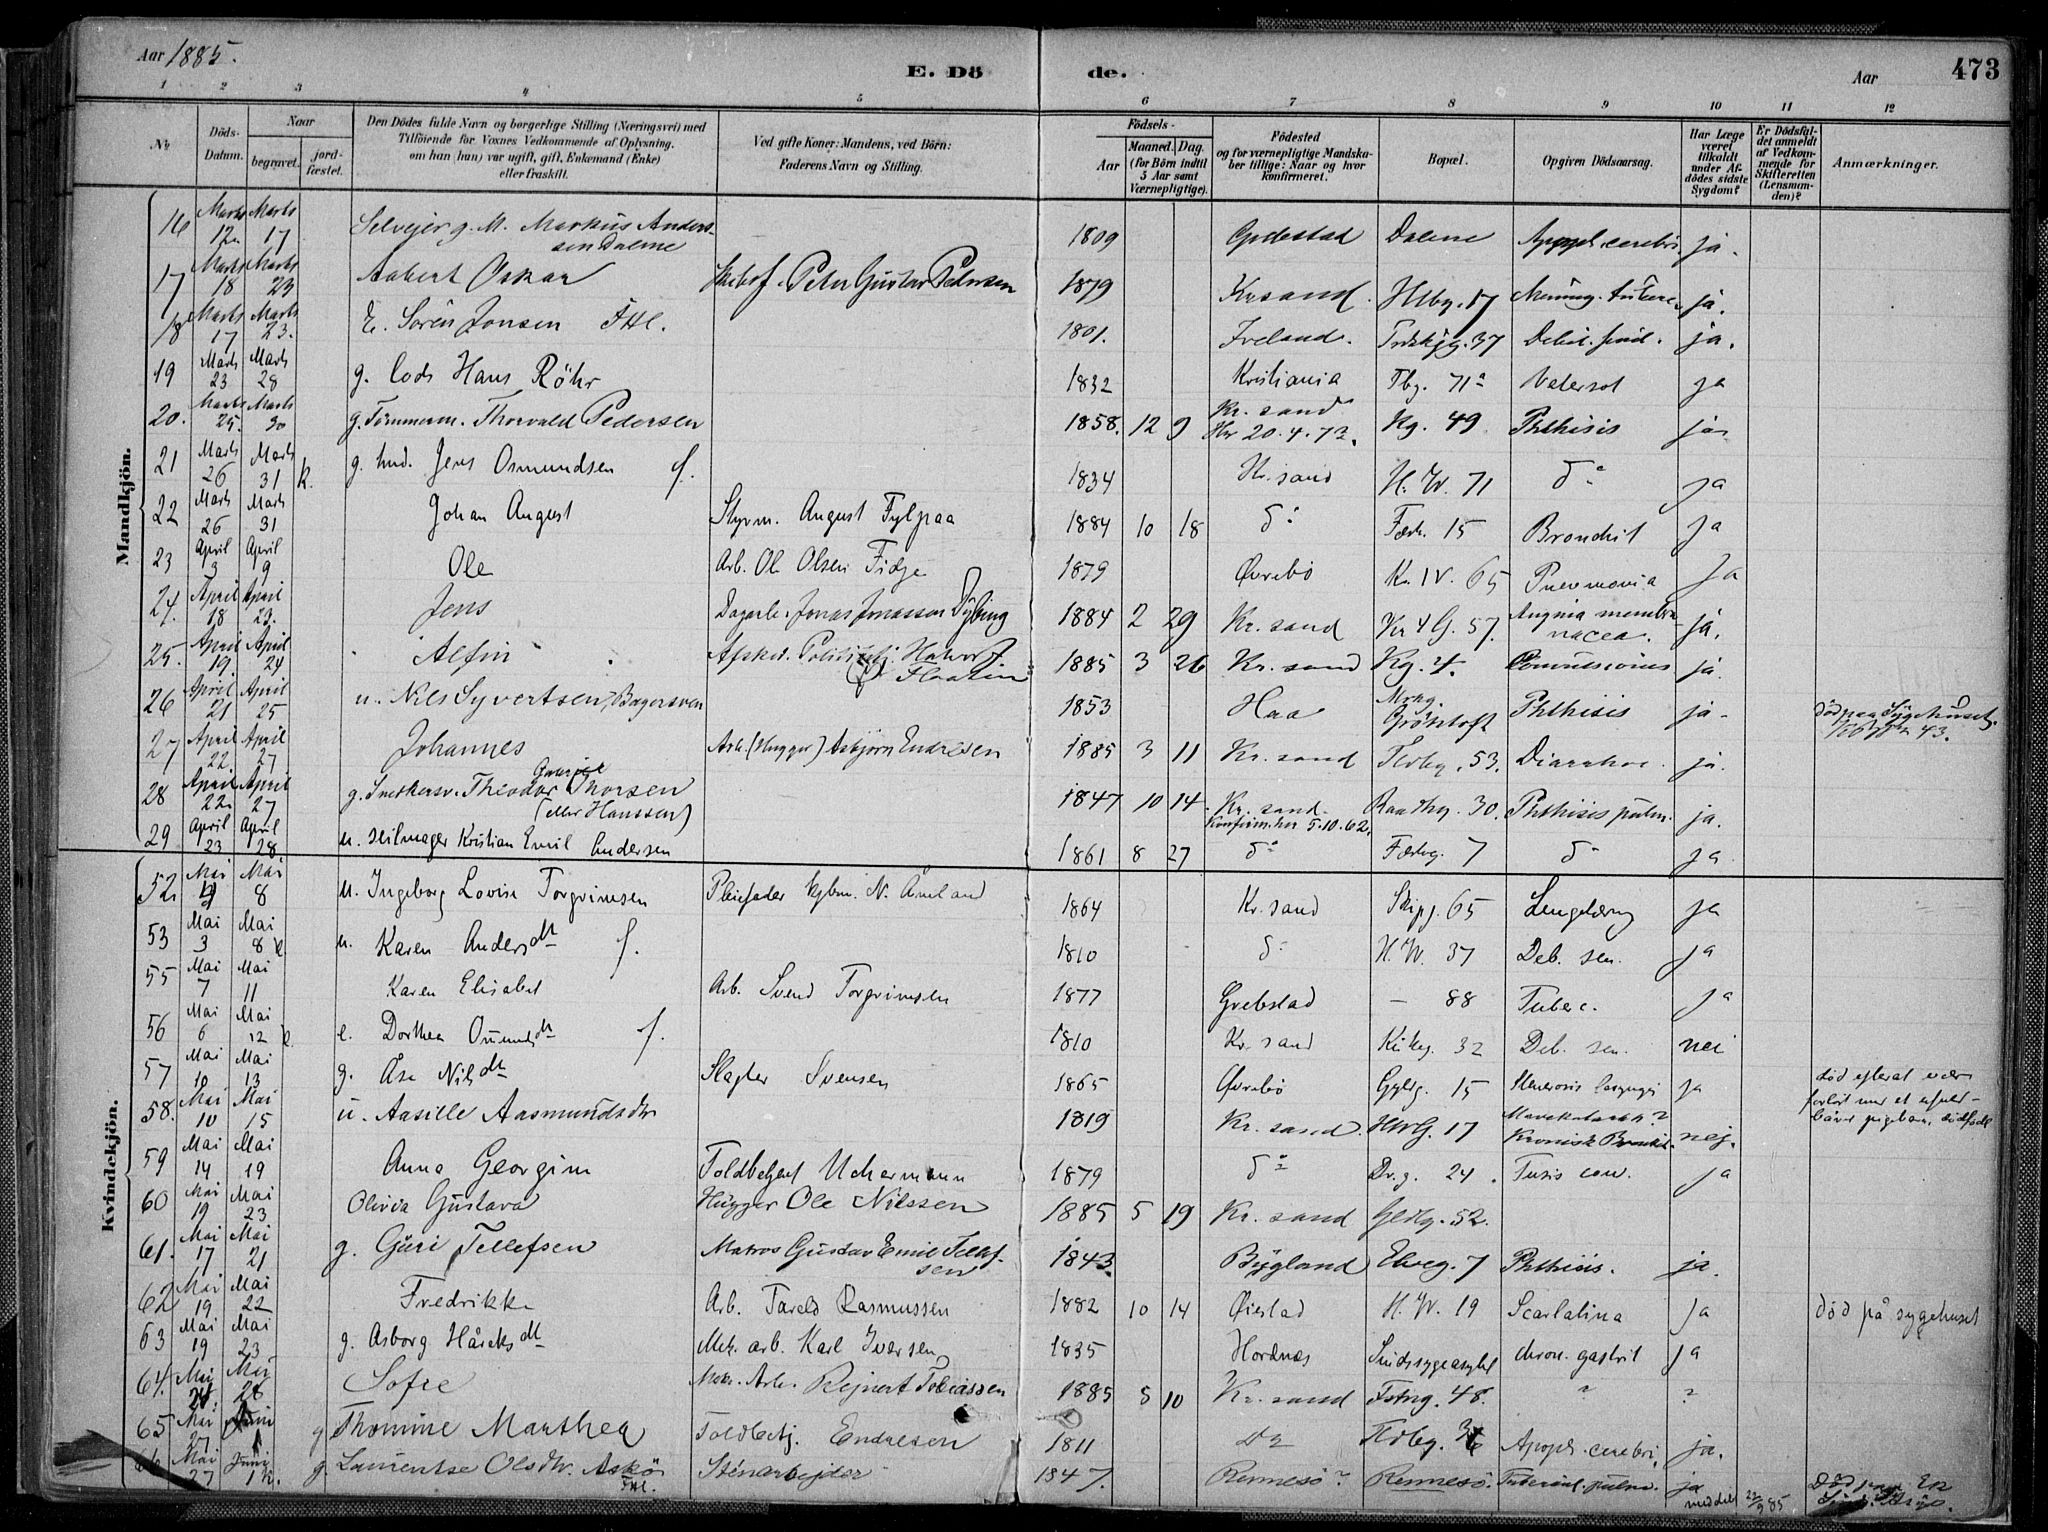 Aar 1885.
E. Dö de.
Aar
473
1 2 3 4 5 6 7 8 9 10 11 12
Nr.
Döds-Datum.
Naar
begravet.
jord-fæstet.
Den Dödes fulde Navn og borgerlige Stilling (Næringsvei) med
Tilföiende for Voxnes Vedkommende af Oplysning,
om han (hun) var ugift, gift, Enkemand (Enke)
eller fraskilt.
Ved gifte Koner: Mandens, ved Börn:
Faderens Navn og Stilling.
Födsels-
Aar
Maaned. Dag.
(for Börn indtil
5 Aar samt
Værnepligtige).
Födested
og for værnepligtige Mandska-
ber tillige: Naar og hvor
konfirmeret.
Bopæl.
Opgiven Dödsaarsag.
Har Læge
været
tilkaldt
under Af-
dödes sidste
Sygdom?
Er Dödsfal-
det anmeldt
af Vedkom-
mende for
Skifteretten
(Lensman-
den)?
Anmærkninger.
Mandkjön.
16 Marts 12 Marts 17 Selveier g. M. Markus Anders-
sen Dalene 1809 Dalene Apopl. cerebri ja.
17 Marts 18 Marts 23 Aabert Oskar Peter Gustav Pedersen 1879 Krsand. Hlbg. 17 ja.
18 Marts 17 Marts 23. E. Sören Jonsen Fthl. 1801. Iveland. 37 Debil. senil. ja.
19 Marts 23 Marts 28 g. Hans Röhr 1832 Kristiania Tbg. 71a Vatersot ja
20. Marts 25. Marts 30 g. Tömmerm. Thorvald Pedersen 1858. 12 9 Kr. sand
20.4.73. Kg. 49 Phthisis ja
21 Marts 26 Marts 31 k. g. hmd. Jens Osmundsen f. 1834 Kr. sand H. W. 71 do ja
22 Marts 26 Marts 31 Johan August Styrm. August Fylpaa 1884 10 18 do Fæst. 15 Bronchit ja
23 April 3 April 9 Ole Arb. Ole Olsen Fidje 1879 Øvrebö Kr. IV. 65 Pnevmonia ja
24. April 18 April 23. Jens Dagarb. Jonas Jonassen Dybing 1884 2 29 Kr. sand Kr 4 G. 57. Angina membra-
nacea. ja.
25. April 19 April 24 Alfin Afsked. Politibetj. Halvor J.
Flaatin 1885 3 26 Kr. sand Kg. 4. Convulsiones ja.
26 April 21 April 25 u. Nils Syvertsen, Bagersven 1853 Haa Mrkg.
Grökstoft Phthisis ja. död paa Sygehuset.
43.
27 April 22. April 27 Johannes Arb. (Hugger) Asbjörn Endresen 1885 3 11 Kr. sand 53. Diarrhoe. ja.
28 April 22 April 27 g. Snekkersv. Theodor Gabriel Thorsen
(eller Hanssen) 1847 10 14. Kr. sand.
Konfirm. her 5.10.62. Raadhg. 30. Phthisis pulm. ja.
29 April 23 April 28 u. Seilmager Kristian Emil Andersen 1861 8 27 do Fæstng. 7 do ja
Kvindekjön.
52. Mai Mai 8 u. Ingeborg Lovise Torgrimsen Pleiefader kjbm. N. Åneland 1864 Kr. sand Skipg. 65 Lungetæring ja
53 Mai 3 Mai 8 k u. Karen Andersdtr f. 1810 do H. W. 37 Deb. sen. ja
55 Mai 7 Mai 11 Karen Elisabet Arb. Svend Torgrimsen 1877 Grebstad – 88 Tuberc. ja
56 Mai 6 Mai 12 e. Dorthea Osmundsdtr f. 1810 Kr. sand Kirkeg. 32 Deb. sen. nei
57 Mai 10 Mai 13 g. Åse Nilsdtr Slagter Svensen 1865 Øvrebö Gyldg. 15 Stenosis laryngis ja död efterat være
forløst med et ufuld-
båren pigebarn, dödfødt
58. Mai 10 Mai 15 u. Aasille Aasmundsdtr 1819 Kr. sand. HWG. 17
Kronisk Bronchit. nej.
59 Mai 14 Mai 19 Anna Georgine Toldbetjent Uchermann 1879 do Dr.g. 24. Tusis conv. ja
60 Mai 19 Mai 23 Olivia Gustava Hugger Ole Nilssen 1885 5 19 Kr. sand Gldlg. 52.
61. Mai 17 Mai 21 g. Guri Tellefsen Matros Gustav Emil Tellef-
sen 1843. Bygland Elveg. 7 Phthisis. ja.
62 Mai 19 Mai 22 Fredrikke Arb. Tarald Rasmussen 1882 10 14 Øiestad H. W. 19 Scarlatina ja död på sygehuset
63 Mai 19 Mai 23 g. Asborg Håreksdtr Mek. arb. Karl Iversen 1835 Hordnæs Sindssygeasylet chron. gastrit ja
64. Mai Mai 28 Sofie Mek. Arb. Rejnert Tobiassen 1885 5 10 Kr. sand Fstng. 48. ? ?
65 Mai 27 Juni 1 g Thomine Marthea Toldbetj. Endresen 1811 do Apopl. cerebri. ja.
66 Mai 27 Juni 1 k. g. Laurentse Olsdtr. Askö
Fthl. Stenarbejder 1847. Rennesö? Rennesö. Tubercul. pulm. ja
meddel 22/9 85